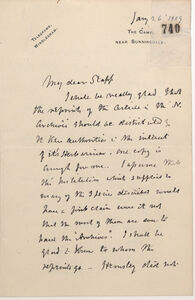 Jany 26. 1909
TELEGRAMS,
WOKINGHAM.
THE CAMP,
740
NEAR SUNNINGDALE.
My dear Stapf
I shall be really glad that
the reprints of the Article in the
Archiv should be distributed by
Kew authorities in the interest
of its Herbarium. One copy is
enough for me. I assume that
the Institution which supplied so
many of the species described would
have a first claim were it not
that the most of them are sure to
have the "Archives". I shall be
glad to know to whom the
reprints go. Hemsley did not